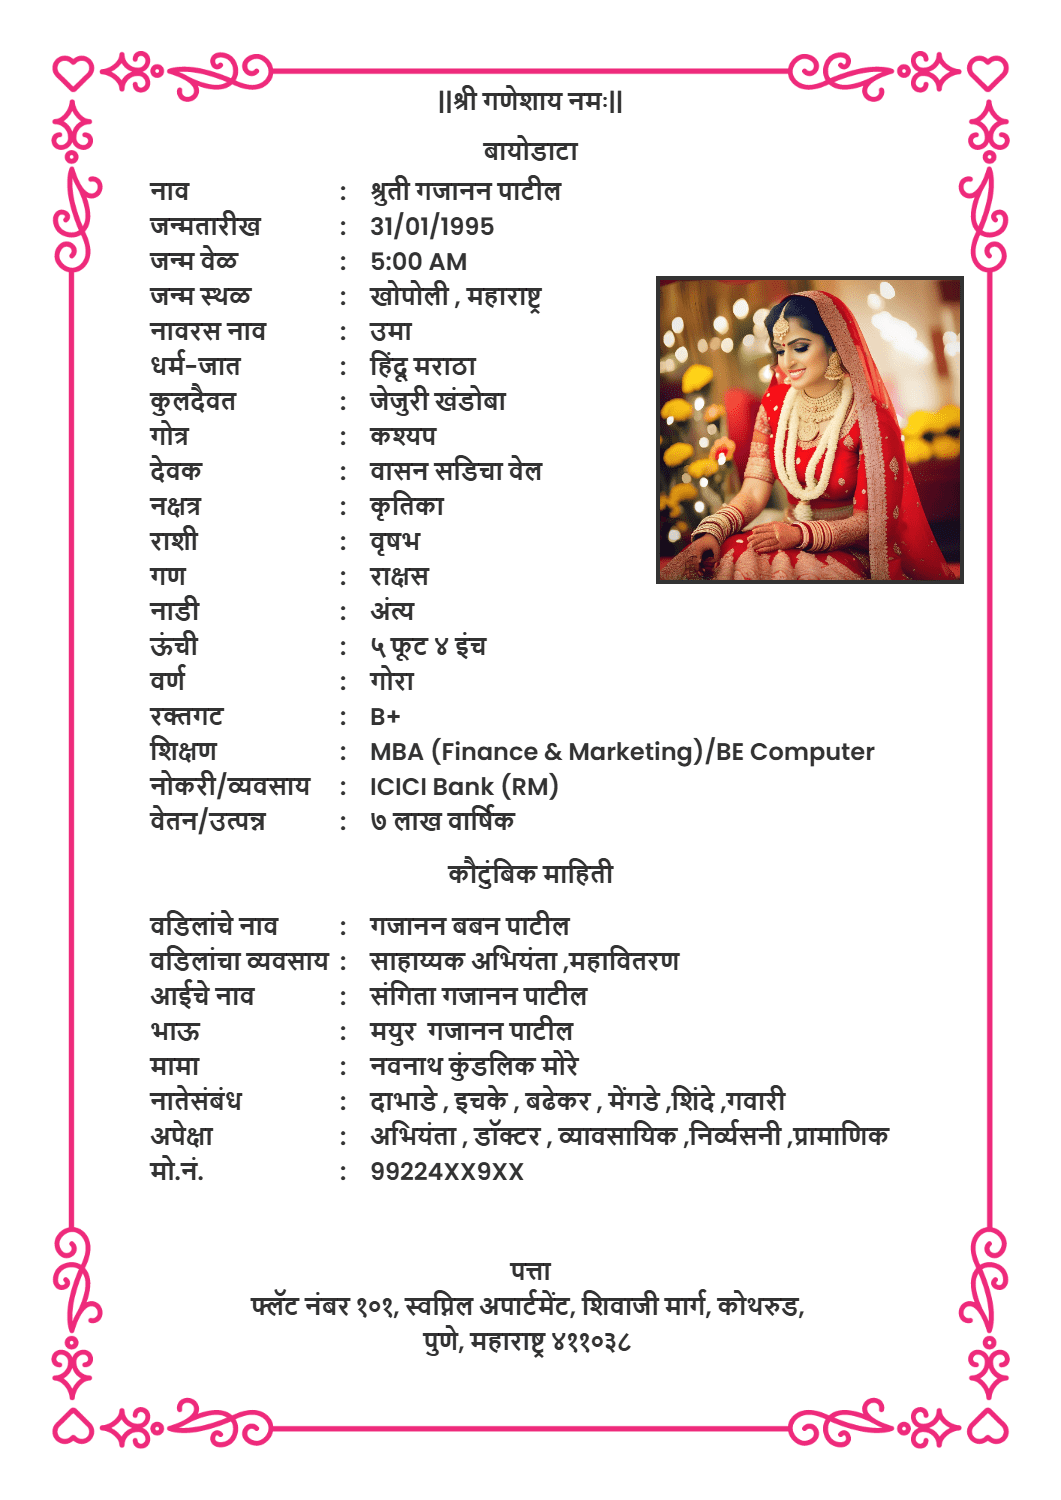 ||श्री गणेशाय नमः||
बायोडाटा
नाव : श्रुती गजानन पाटील
जन्मतारीख : 31/01/1995
जन्म वेळ : 5:00 AM
जन्म स्थळ : खोपोली , महाराष्ट्र
नावरस नाव : उमा
धर्म-जात : हिंदू मराठा
कुलदैवत : जेजुरी खंडोबा
गोत्र : कश्यप
देवक : वासन सडिचा वेल
नक्षत्र : कृतिका
राशी : वृषभ
गण : राक्षस
नाडी : अंत्य
ऊंची : ५ फूट ४ इंच
वर्ण : गोरा
रक्तगट : B+
शिक्षण : MBA (Finance & Marketing)/BE Computer
नोकरी/व्यवसाय : ICICI Bank (RM)
वेतन/उत्पन्न : ७ लाख वार्षिक
कौटुंबिक माहिती
वडिलांचे नाव : गजानन बबन पाटील
वडिलांचा व्यवसाय : साहाय्यक अभियंता ,महावितरण
आईचे नाव : संगिता गजानन पाटील
भाऊ : मयुर गजानन पाटील
मामा : नवनाथ कुंडलिक मोरे
नातेसंबंध : दाभाडे , इचके , बढेकर , मेंगडे ,शिंदे ,गवारी
अपेक्षा : अभियंता , डॉक्टर , व्यावसायिक ,निर्व्यसनी ,प्रामाणिक
मो.नं. : 99224XX9XX
पत्ता
फ्लॅट नंबर १०१, स्वप्निल अपार्टमेंट, शिवाजी मार्ग, कोथरुड,
पुणे, महाराष्ट्र ४११०३८